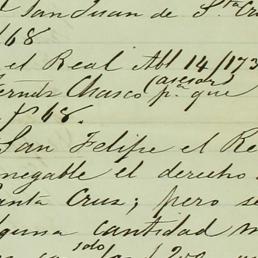 San Juan de Sta Cru
68
el Real Abl 14/173
Chasco (asesor) pa que
68.
San Felipe el Re
negable el derecho
anta Cruz; pero se
lguna cantidad m
solo